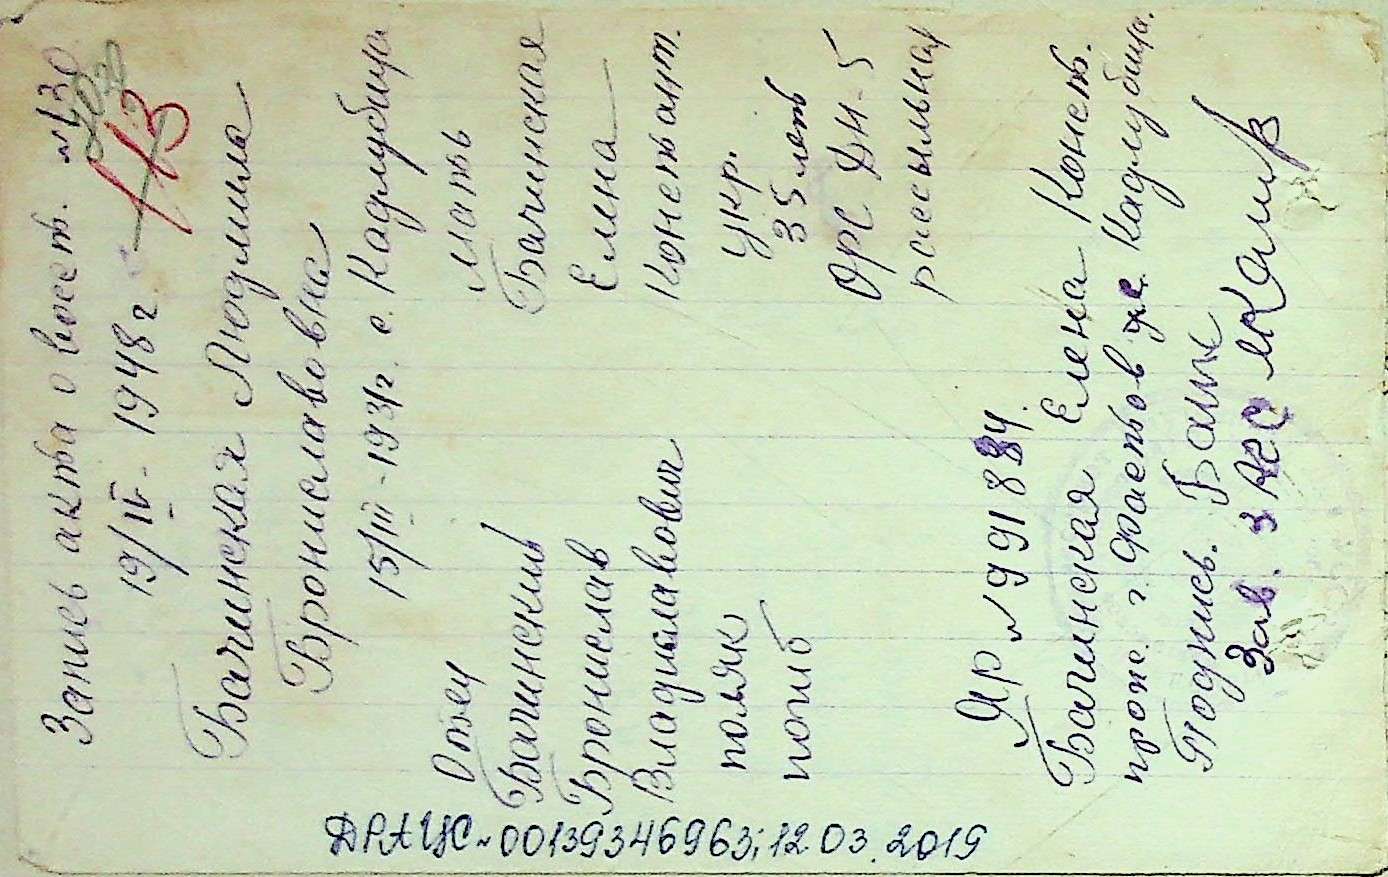 Запись акта о восст. №130
19/IV - 1948 г
113
Бачинская Людмила
Брониславовна
15/III - 1931г. с. Кадлубица
Отец
Бачинский
Бронислав
Владиславович
поляк
погиб
мать
Бачинская
Елена
Констант.
укр.
35 лет
ОРС ДН-5
рассыльная
ЯР №991884
Бачинская Елена Конст.
прож. г. Фастов с. Кадлубица.
Подпись. Бачин
Зав. ЗАГС
ДРАЦС №00139346963; 12.03.2019